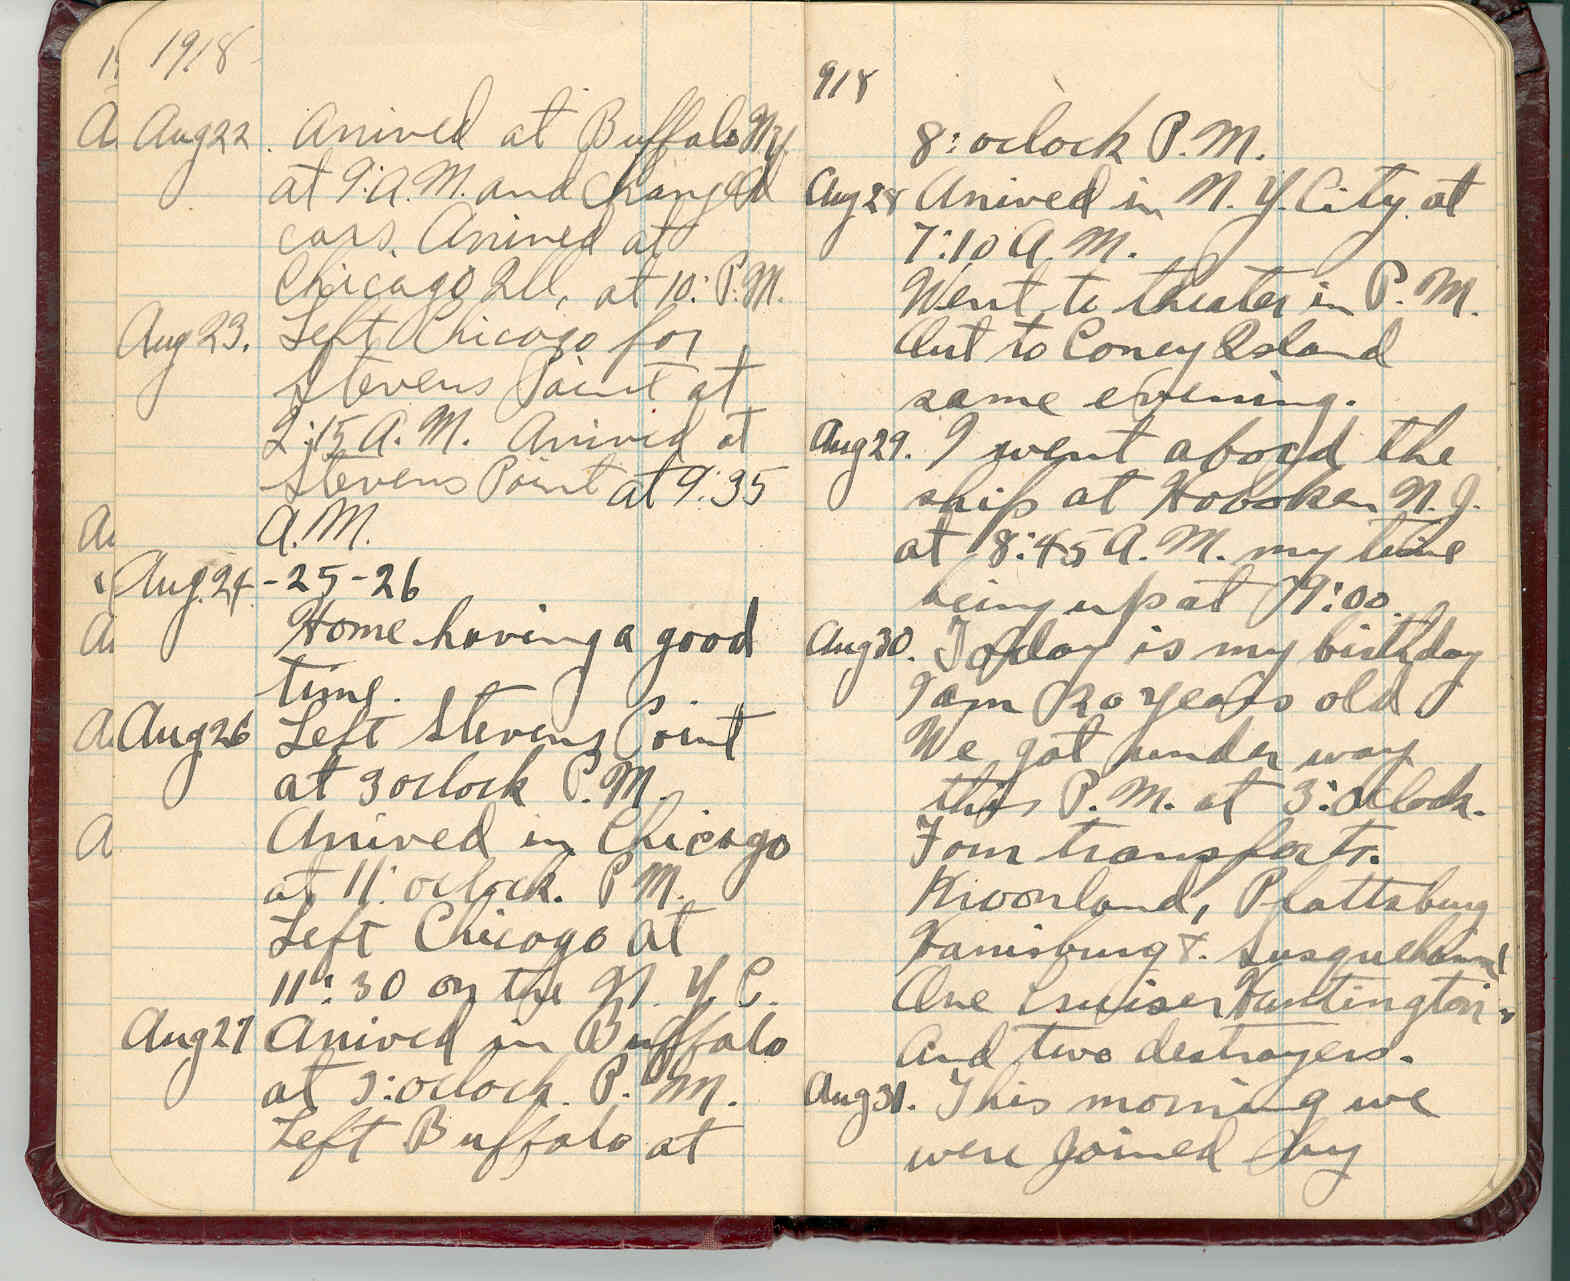 1918
Aug 22. Arrived at Buffalo N.Y.
at 9: A.M. and changed
cars. Arrived at
Chicago Ill, at 10: P.M.
Aug 23. Left Chicago for
Stevens Point at
2:15 A.M. Arrived at
Stevens Point at 9:35
A.M.
Aug. 24 - 25 - 26
Home having a good
time.
Aug 26 Left Stevens Point
at 3 oclock P.M.
Arrived in Chicago
at 11: oclock. P M.
Left Chicago at
11:30 on the N. Y C.
Aug 27 Arrived in Buffalo
at 3: oclock. P. M.
Left Buffalo at
918
8: oclock P.M.
Aug 28 Arrived in N. Y. City. at
7:10 A.M.
Went to theater in P. M.
Out to Coney Island
same evening.
Aug 29. I went abord the
ship at Hoboken N. J.
at 8:45 A. M. my time
being up at 9:00.
Aug 30. Today is my birthday
I am 20 years old
We got under way
this P. M. at 3: oclock.
Four transports.
Kroonland, Plattsburg
Harrisburg &. Susquehanna
One cruiser Huntington
And two destroyers.
Aug 31. This morning we
were joined by